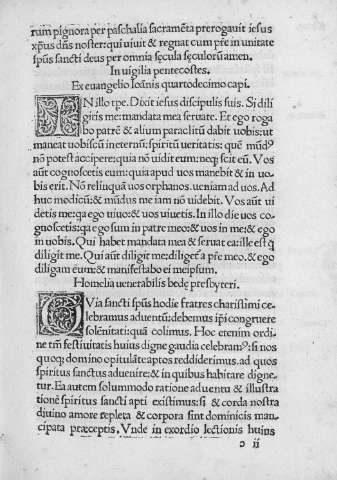 rum pignora per paschalia sacramēta prerogauit iesus
xp̄us dn̄s noster: qui uiuit & regnat cum pr̄e in unitate
sp̄us sancti deus per omnia sęcula sęculorū amen.
In uigilia pentecostes.
Ex euangelio Ioānis quartodecimo capi.
IN illo tp̄e. Dixit iesus discipulis suis. Si dili
gitis me: mandata mea seruate. Et ego roga
bo patrē & alium paraclitū dabit uobis: ut
maneat uobiscū in eternū: spiritū ueritatis: quē mūdꝰ
nō potest accipere: quia nō uidit eum: neqꝫ scit eū. Vos
aūt cognoscetis eum: quia apud uos manebit & in uo-
bis erit. Nō relinquā uos orphanos. ueniam ad uos. Ad
huc modicū: & mūdus me iam nō uidebit. Vos aūt ui
detis me: qa ego uiuo: & uos uiuetis. In illo die uos co-
gnoscetis: qa ego sum in patre meo: & uos in me: & ego
in uobis. Qui habet mandata mea & seruat ea: ille est q̄
diligit me. Qui aūt diligit me: diligetᷣ a pr̄e meo. & ego
diligam eum: & manifestabo ei meipsum.
Homelia uenerabilis bedę presbyteri.
QVia sancti sp̄us hodie fratres charissimi ce-
lebramus aduentū: debemus ip̄i congruere
solēnitati: quā colimus. Hoc etenim ordi-
ne tm̄ festiuitatis huius digne gaudia celebramꝰ: si nos
quoqꝫ domino opitulāte aptos reddiderimus. ad quos
spiritus sanctus aduenire: & in quibus habitare digne-
tur. Ea autem solummodo ratione aduentu & illustra
tionē spiritus sancti apti existimus: si & corda nostra
diuino amore repleta & corpora sint dominicis man-
cipata pręceptis. Vnde in exordio lectionis huius
ɔ ii